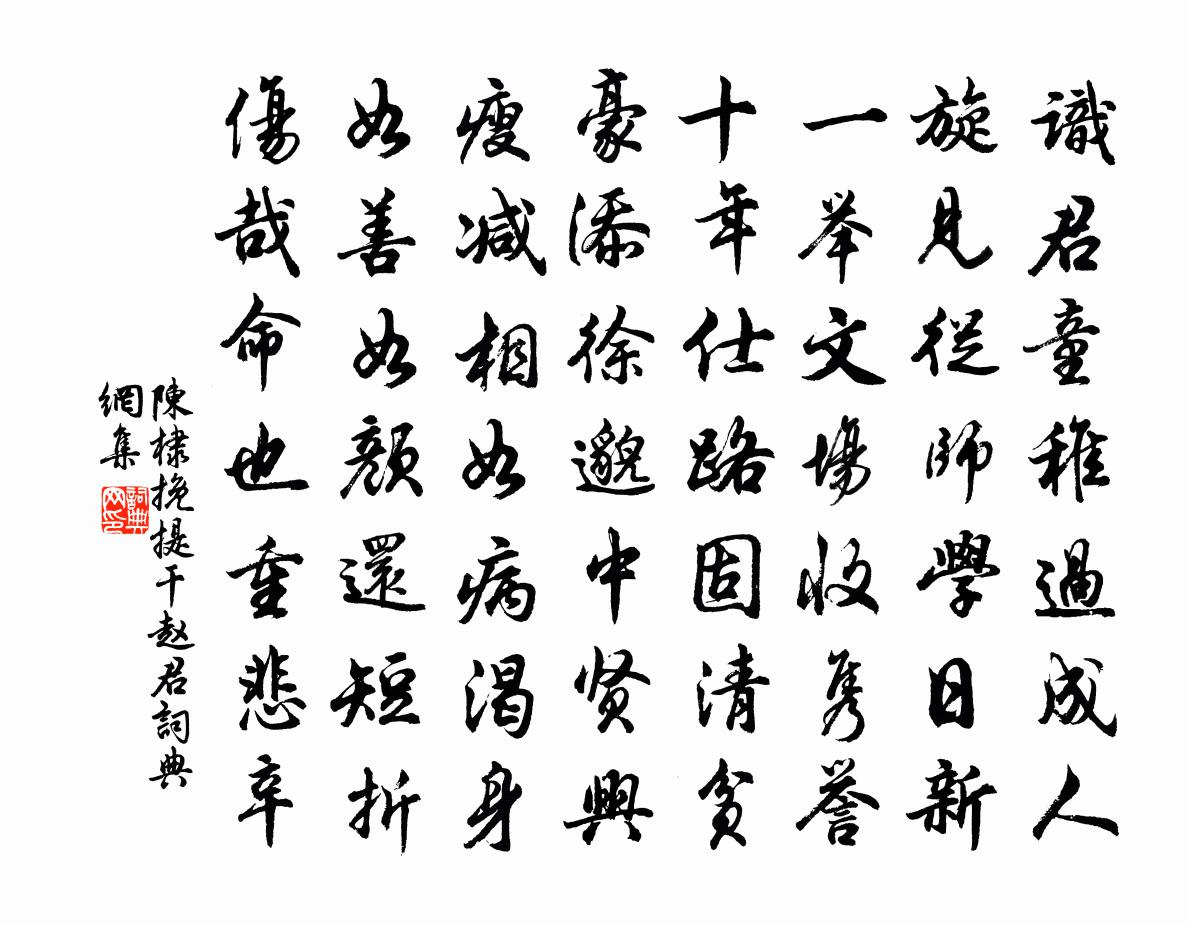 識君童稚過成人
旋見從師學日新
一举文場收隽誉
十年仕路固清貧
豪添徐邈中贤興
瘦减相如病渴身
如善如顔還短折
傷哉命也重悲辛
陳棣挽提干赵君詞典
網集
詞典
网印